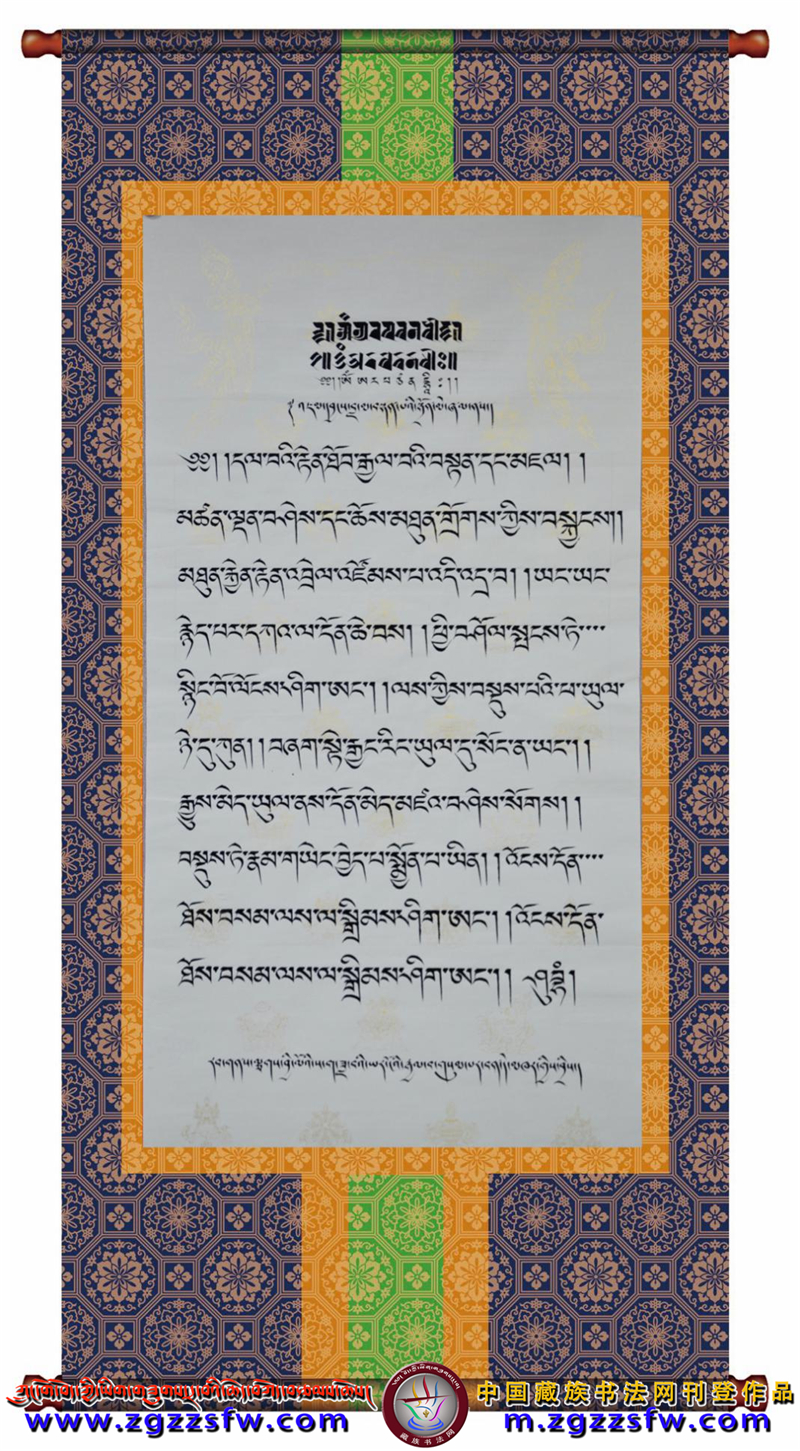 ༄༅། །དལ་བའི་རྟེན་ཐོབ་རྒྱལ་བའི་བསྟན་དང་མཇལ། །
མཚན་ལྡན་བཤེས་དང་ཆོས་མཐུན་གྲོགས་ཀྱིས་བསྐྱངས།།
མཐུན་རྐྱེན་རྟེན་འབྲེལ་འཛོམས་པ་འདི་འདྲ་བ། །ཡང་ཡང་
རྙེད་པར་དཀའ་ལ་དོན་ཆེ་བས། །ཕྱི་བཤོལ་སྤངས་ཏེ་
སྙིང་པོ་ལོངས་ཤིག་ཨང་། །ལས་ཀྱིས་བསྡུས་པའི་ཕ་ཡུལ་
ཉེ་དུ་ཀུན།། བཞག་སྟེ་རྒྱང་རིང་ཡུལ་དུ་སོང་ན་ཡང་། །
རྒྱུས་མེད་ཡུལ་ནས་དོན་མེད་མཛའ་བཤེས་སོགས། །
བསྡུས་ཏེ་རྣམ་གཡེང་བྱེད་པ་སྨྱོན་པ་ཡིན། །འོངས་དོན་
ཐོས་བསམ་ལས་ལ་སྒྲིམས་ཤིག་ཨང་། །འོངས་དོན་
ཐོས་བསམ་ལས་ལ་སྒྲིམས་ཤིག་ཨང་།།
中国藏族书法网刊登作品
www.zgzzsfw.com
藏族书法网
m.zgzzsfw.com